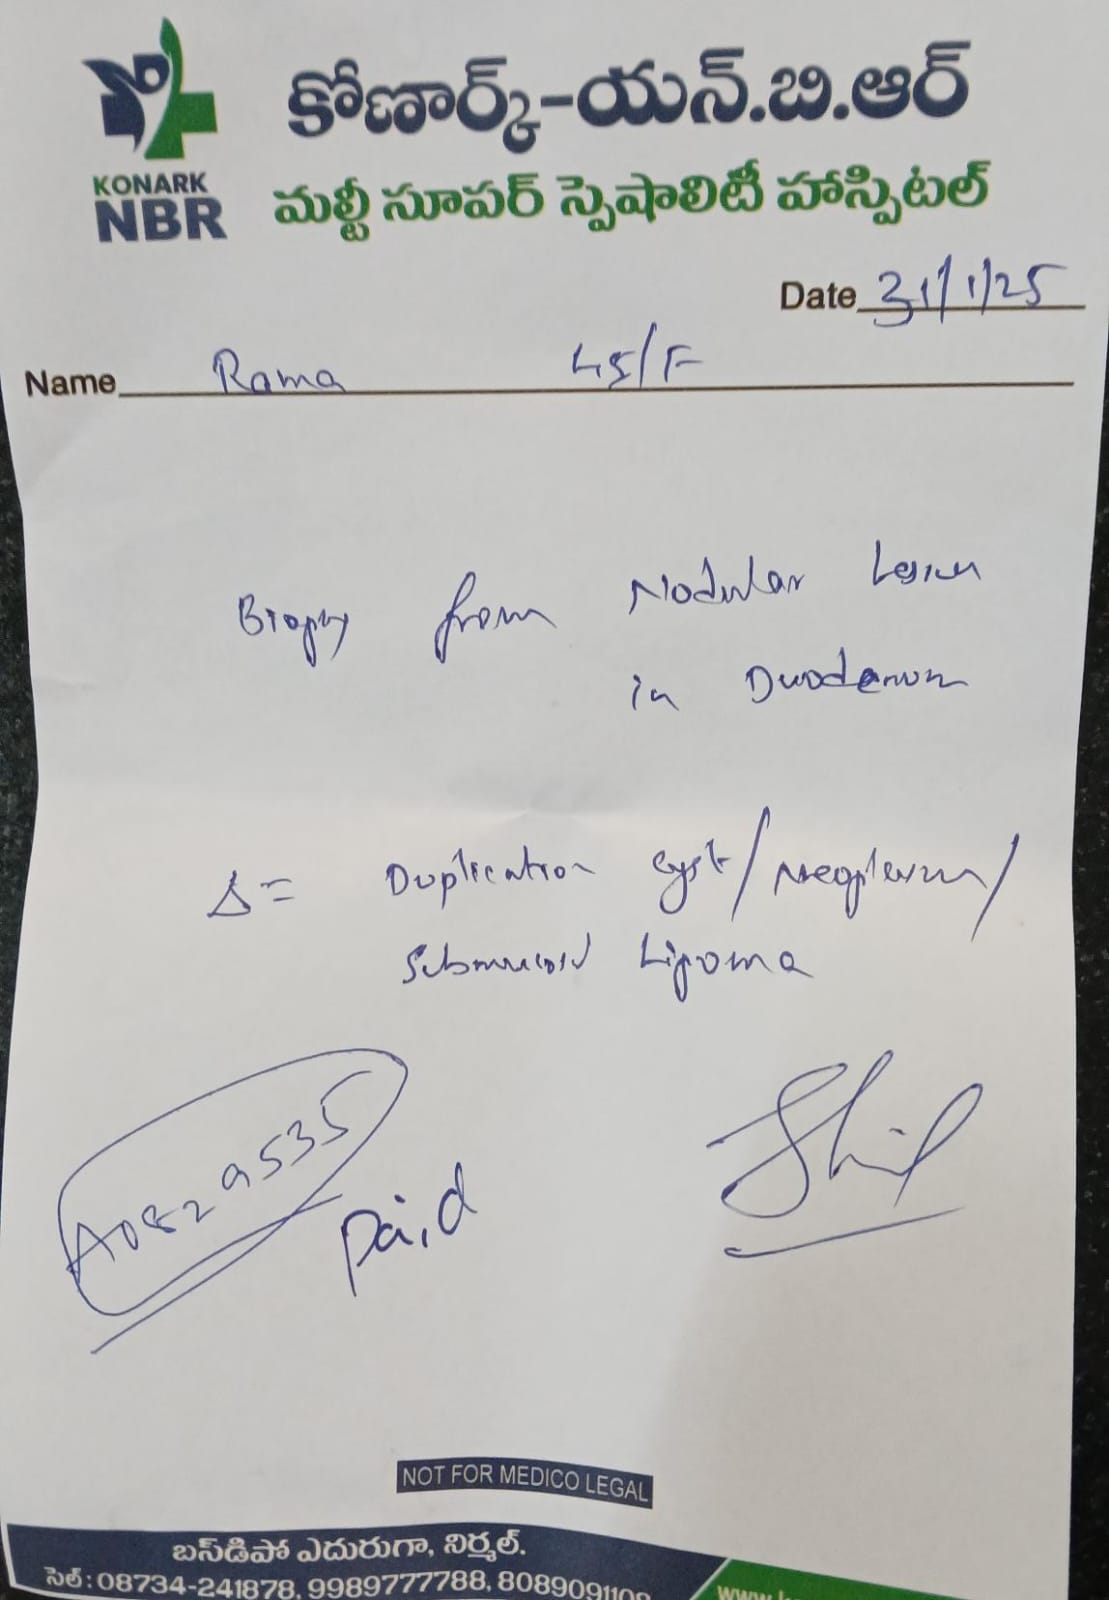 కోణార్క్-యన్.బి.ఆర్
KONARK
NBR
మల్టీ సూపర్ స్పెషాలిటీ హాస్పిటల్
Date 31/1/25
Name Rama 45/F
Biopsy from Nodular Lesion
in Duodenum
Δ= Duplication cyst/Neoplasm/
Submucosal Lipoma
A0829535
Paid
NOT FOR MEDICO LEGAL
బస్‌డిపో ఎదురుగా, నిర్మల్.
సెల్ : 08734-241878, 9989777788,
www.